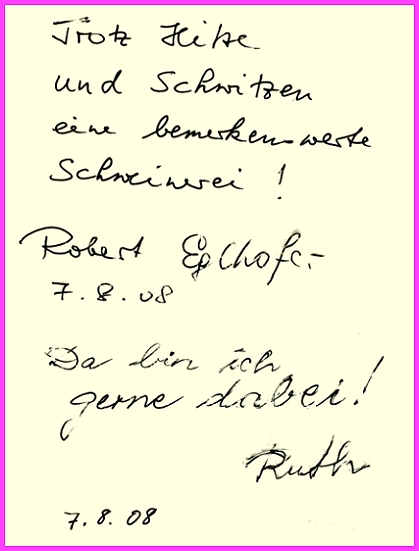 Trotz Hitze
und Schwitzen
eine bemerkenswerte
Schweinerei !
Robert Eglhofer
7.8.08
Da bin ich
gerne dabei!
Ruth
7.8.08